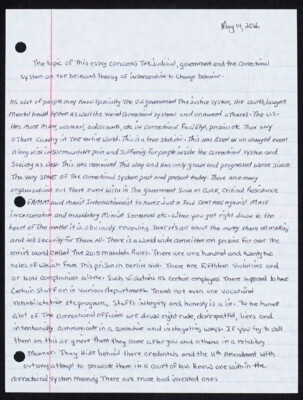 May 14, 2016
The topic of this essay concerns The Judicial, government and the correctional
system on The beloved theory of incarceration to change behavior.
As alot of people may know specially The US government The Justice system, The courts, lawyers
mental health system as well the moral correctional systems and one want others. The U.S.
has more men, women, adolescents, etc in correctional facilitys, prisons etc Than any
other country in The entire world. This is a true statistic. This has been on an unequal event
a long with insurmountable pain and suffering for people inside the correctional system and
society as well. This has remained This way and has only grown and progressed worse since
The very start of The correctional system past and present today. There are many
organizations out There even ones in The government such as CURE, Critical Resistance
FAMM and many Internationals to name just a few That are against mass
incarceration and mandatory minimum sentences etc. When you get right down to the
heart of The matter it is absolutely revolting. That its all about the money There all making
and Job security for Them all. There is a world wide committee on prisons for over The
entire world called The 2015 mandela Rules. There are one hundred and twenty two
rules of which from This prison in berlin N.H. There are fifteen violations and
or non compliance alone. Such violations as certain employees There supposed to have
certain staff on in various departments Thend not even one vocational
rehabilitation etc program, staffs integrity and honesty is a lie. To be honest
alot of The correctional officers are down right rude, disrespectful, liers and
intentionally communicate in a sensitive and instigating ways. If you try to call
them on this or grieve them they come after you and others in a retalitory
manner. They hide behind there credentials and the 11th Amendment with
out any attempt to prosecute them in a court of law. Knows one with in the
correctional system meaning There are more bad invested ones